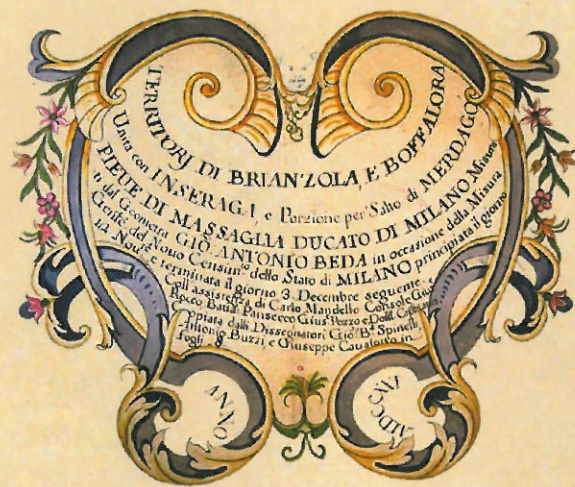 TERRITORJ DI BRIANZOLA, E BOFFALORA
Unita con INSERAGA, e Porzione per Salto di MERDAGO
PIEUE DI MASSAGLIA DUCATO DI MILANO Misura
ti dal Geometra GIO ANTONIO BEDA in occasione della Misura
Gñle del Nouo Censim.to dello Stato di MILANO principiata il giorno
Nov.re e terminata il giorno 3. Decembre seguente
Coll assistenza di Carlo Mandello Console
Rocco Pansecco Gius. Pozzo e
Copiata dalli Dissegnatori Gio B.a Spinelli,
Antonio Buzzi e Giuseppe in
fogli 8
ANNO
MDCCXXI